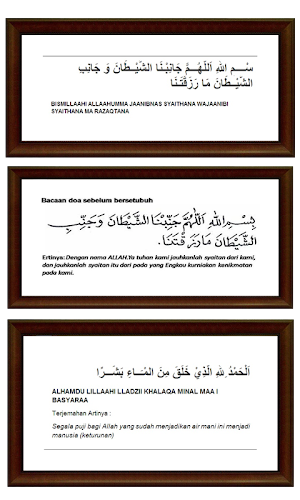 سْــمِ اللهِ اَللّهُــمَّ جَانِبْـنَا الشَّيْـطَانَ وَ جَانِبِ
الشَّيْـطَانَ مَا رَزَقْتَنَا
BISMILLAAHI ALLAAHUMMA JAANIBNAS SYAITHANA WAJAANIBI
SYAITHANA MA RAZAQTANA
Bacaan doa sebelum bersetubuh
بِسْمِ اللهِ اَللّٰهُمَّ جَنِّبْنَا الشَّيْطَانَ وَجَنِّبِ
الشَّيْطَانَ مَا رَزَقْتَنَا.
Ertinya: Dengan nama ALLAH.Ya tuhan kami jauhkanlah syaitan dari kami,
dan jauhkanlah syaitan itu dari pada yang Engkau kurniakan kenikmatan
pada kami.
اَلْحَمْدُ ِللهِ الَّذِيْ خَلَقَ مِنَ الْمَـاءِ بَشَـرًا
ALHAMDU LILLAAHI LLADZII KHALAQA MINAL MAA I
BASYARAA
Terjemahan Artinya :
Segala puji bagi Allah yang sudah menjadikan air mani ini menjadi
manusia (keturunan)